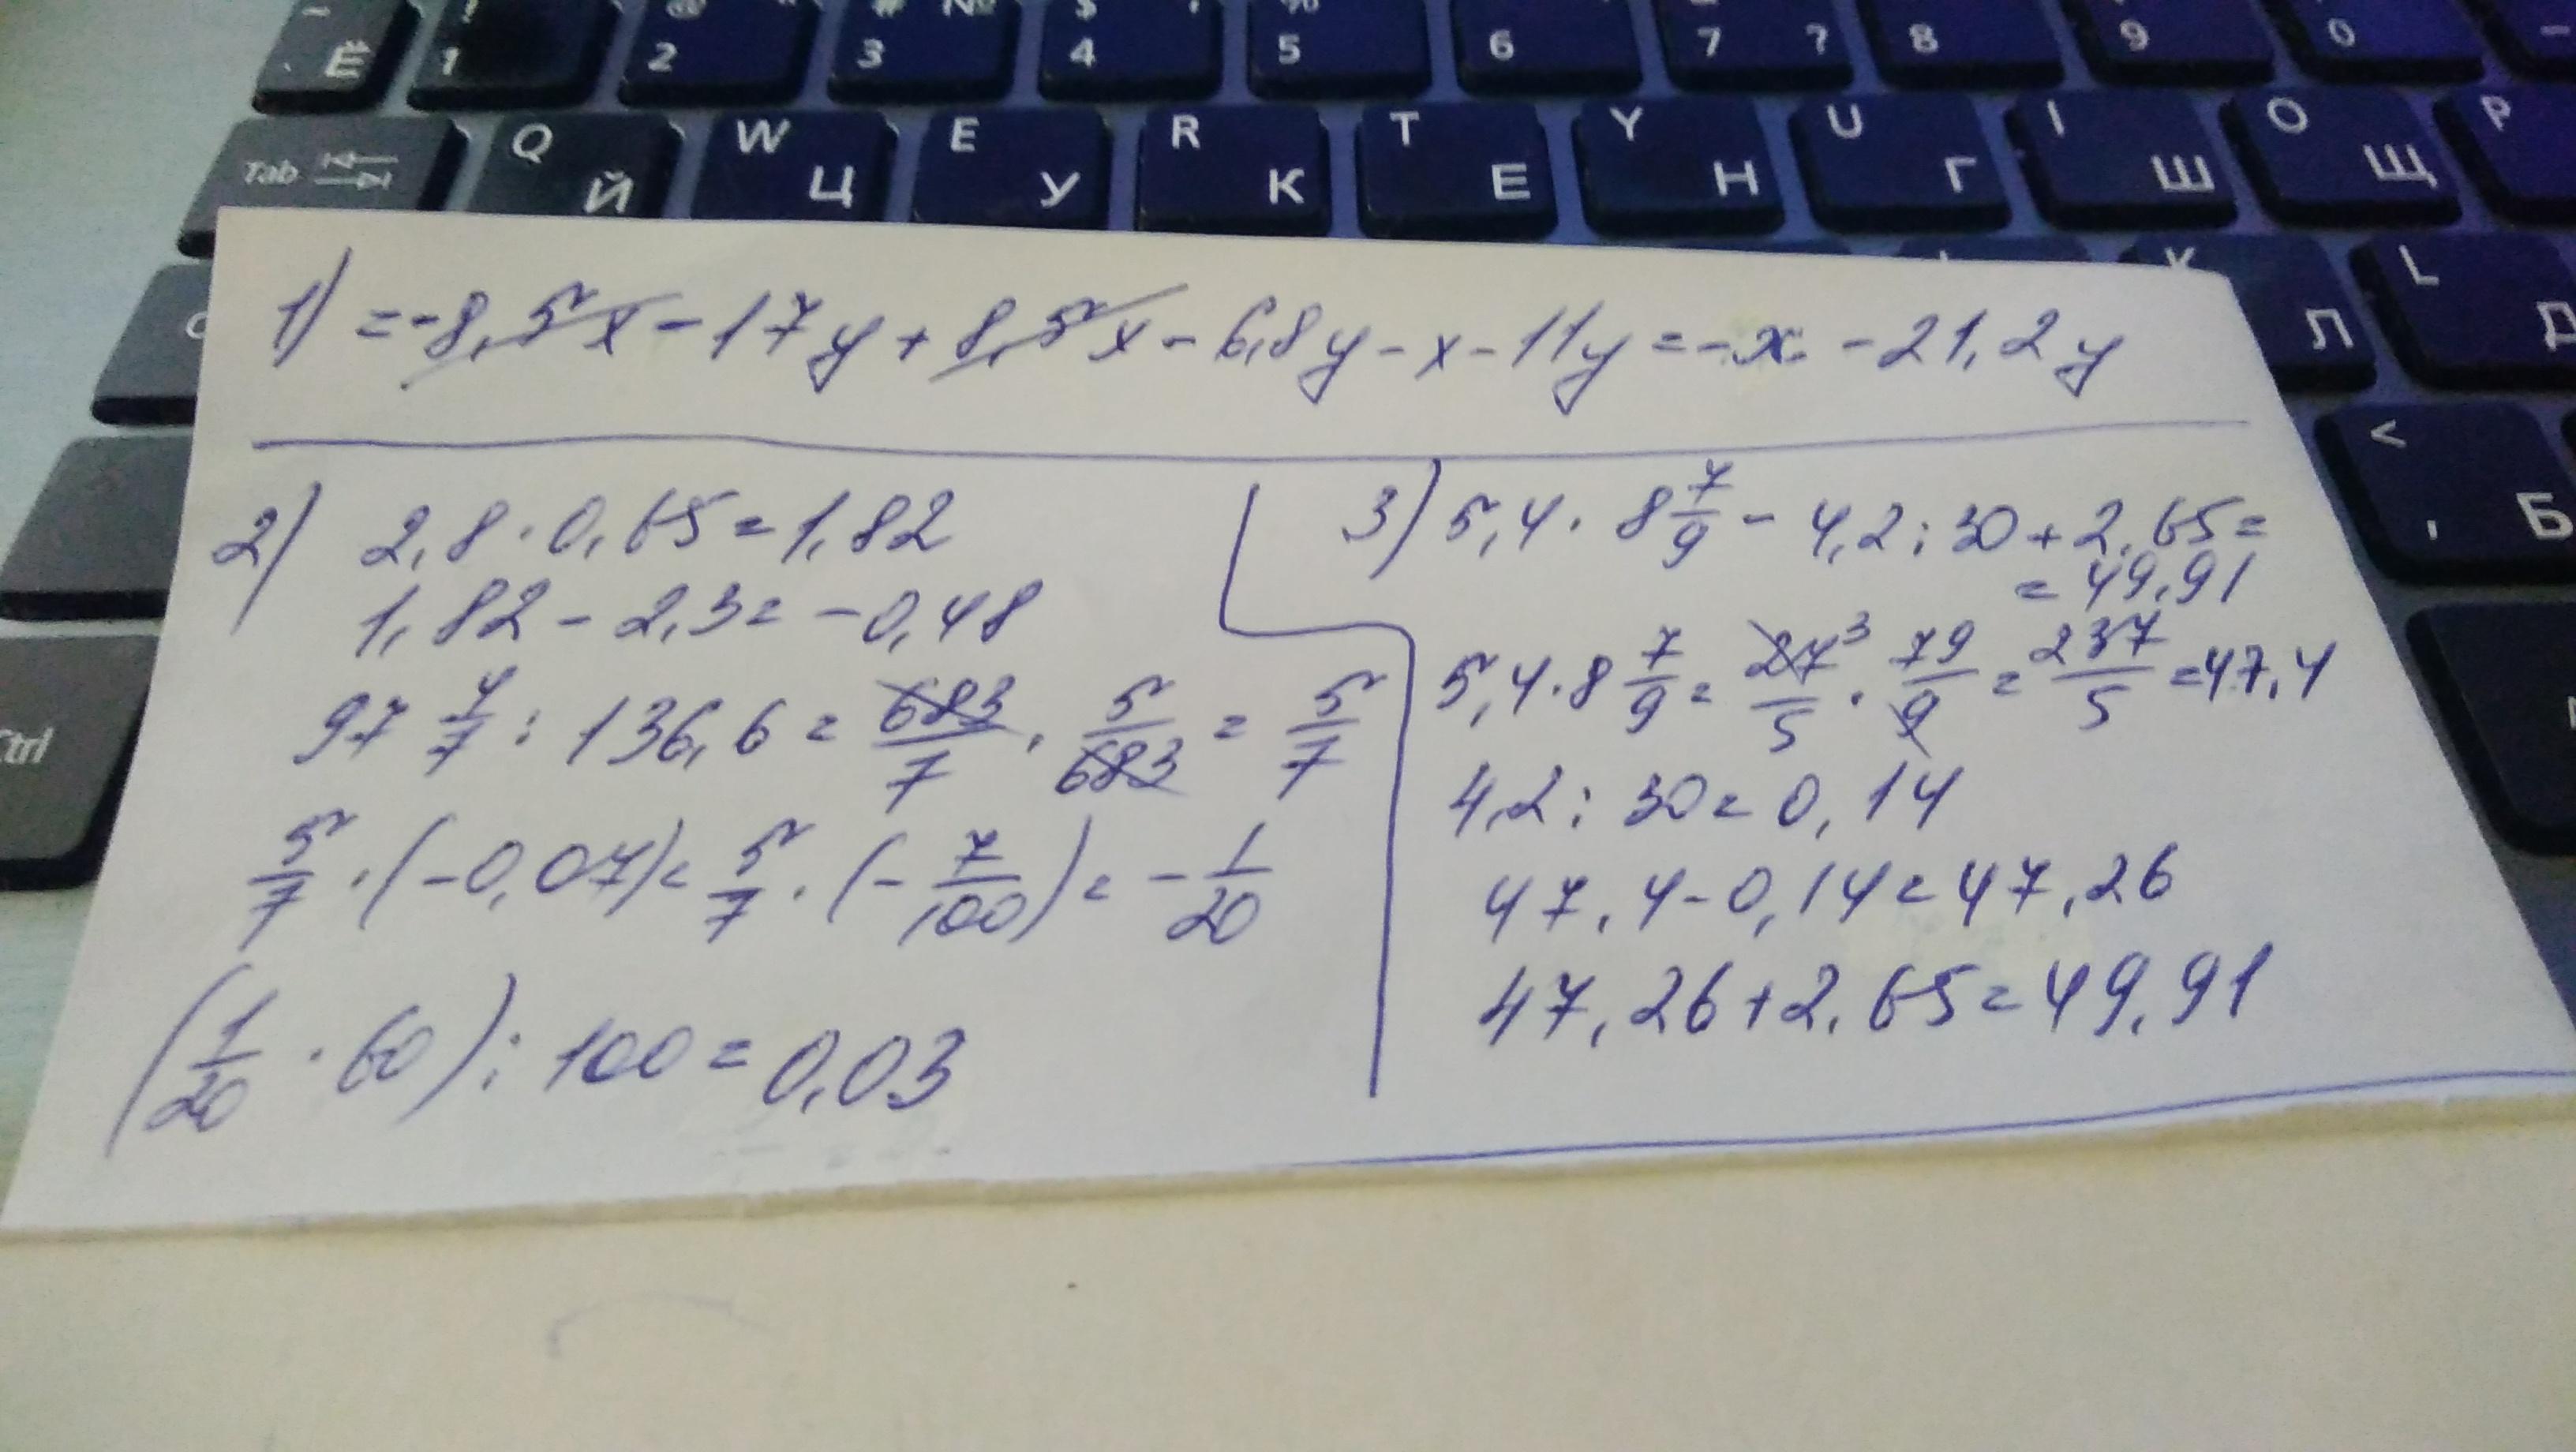 Ё ! 1 @ " 2 # № 3 $ 4 % 5 6 7 ? 8 9 0
Tab Q Й W Ц E У R К T Е Y Н U Г I Ш O Щ P
L Л Д
< , Б
Ctrl
1) = -8,5x - 17y + 8,5x - 6,8y - x - 11y = -x - 21,2y
2) 2,8 · 0,65 = 1,82
1,82 - 2,3 = -0,48
97 4/7 : 136,6 = 683/7 · 5/683 = 5/7
5/7 · (-0,07) = 5/7 · (-7/100) = -1/20
(1/20 · 60) : 100 = 0,03
3) 5,4 · 8 7/9 - 4,2 : 30 + 2,65 =
= 49,91
5,4 · 8 7/9 = 27³/5 · 79/9 = 237/5 = 47,4
4,2 : 30 = 0,14
47,4 - 0,14 = 47,26
47,26 + 2,65 = 49,91